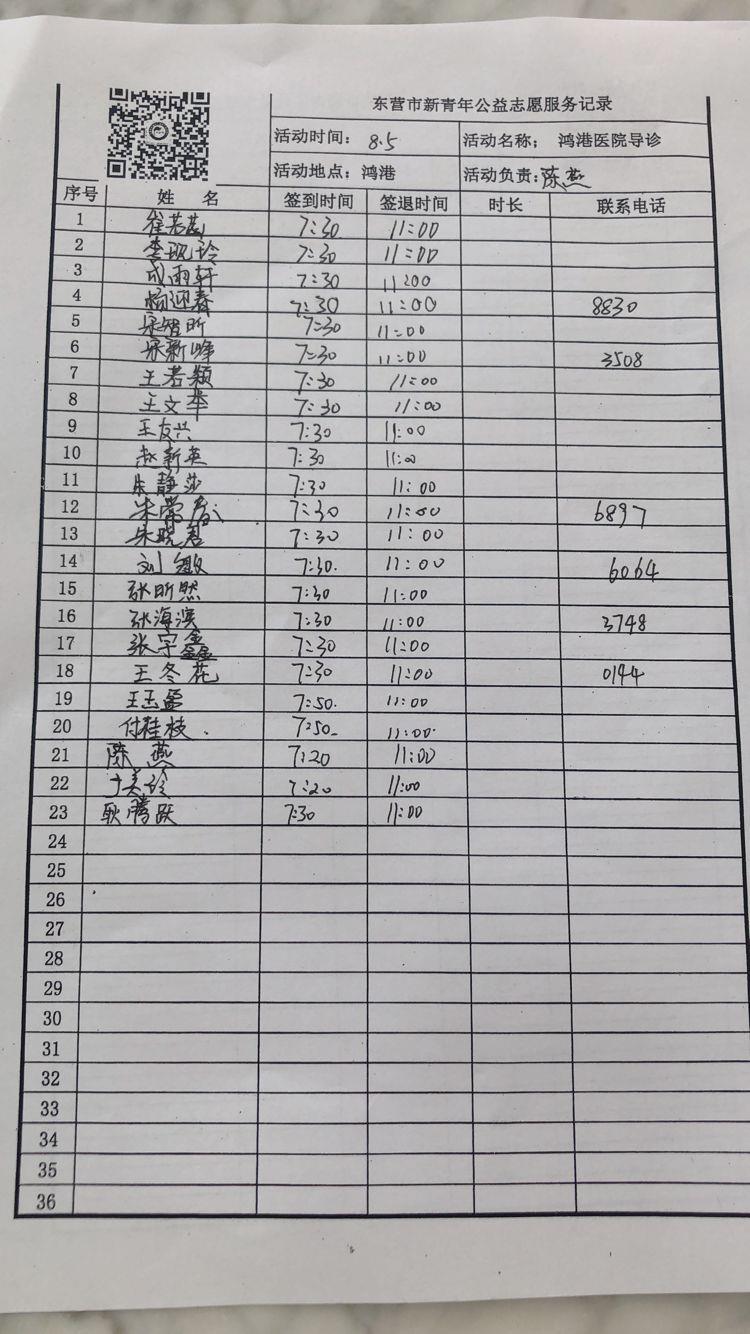 东营市新青年公益志愿服务记录
活动时间：8.5 活动名称： 鸿港医院导诊
活动地点：鸿港 活动负责：陈燕
序号 姓 名 签到时间 签退时间 时长 联系电话
1 崔若 7:30 11:00
2 李 玲 7:30 11:00
3 成雨轩 7:30 11:00
4 杨迎春 7:30 11:00 8830
5 宋智昕 7:30 11:00
6 宋新峰 7:30 11:00 3508
7 王若颖 7:30 11:00
8 王文华 7:30 11:00
9 王友兴 7:30 11:00
10 赵新英 7:30 11:00
11 朱静莎 7:30 11:00
12 朱常 7:30 11:00 6897
13 朱晓君 7:30 11:00
14 刘敏 7:30. 11:00 6064
15 张昕然 7:30 11:00
16 张海滨 7:30 11:00 3748
17 张宇鑫 7:30 11:00
18 王冬花 7:30 11:00 0144
19 王玉 7:50. 11:00
20 付桂枝. 7:50 11:00
21 陈燕 7:20 11:00
22 于美玲 7:20 11:00
23 耿腾跃 7:30 11:00
24
25
26
27
28
29
30
31
32
33
34
35
36